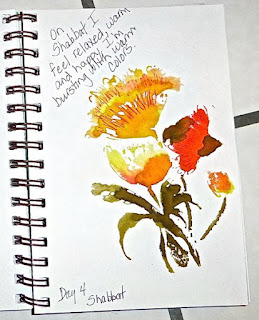 On
Shabbat I
feel relaxed, warm
and happy. I'm
bursting with warm
colors.
Day 4
Shabbat